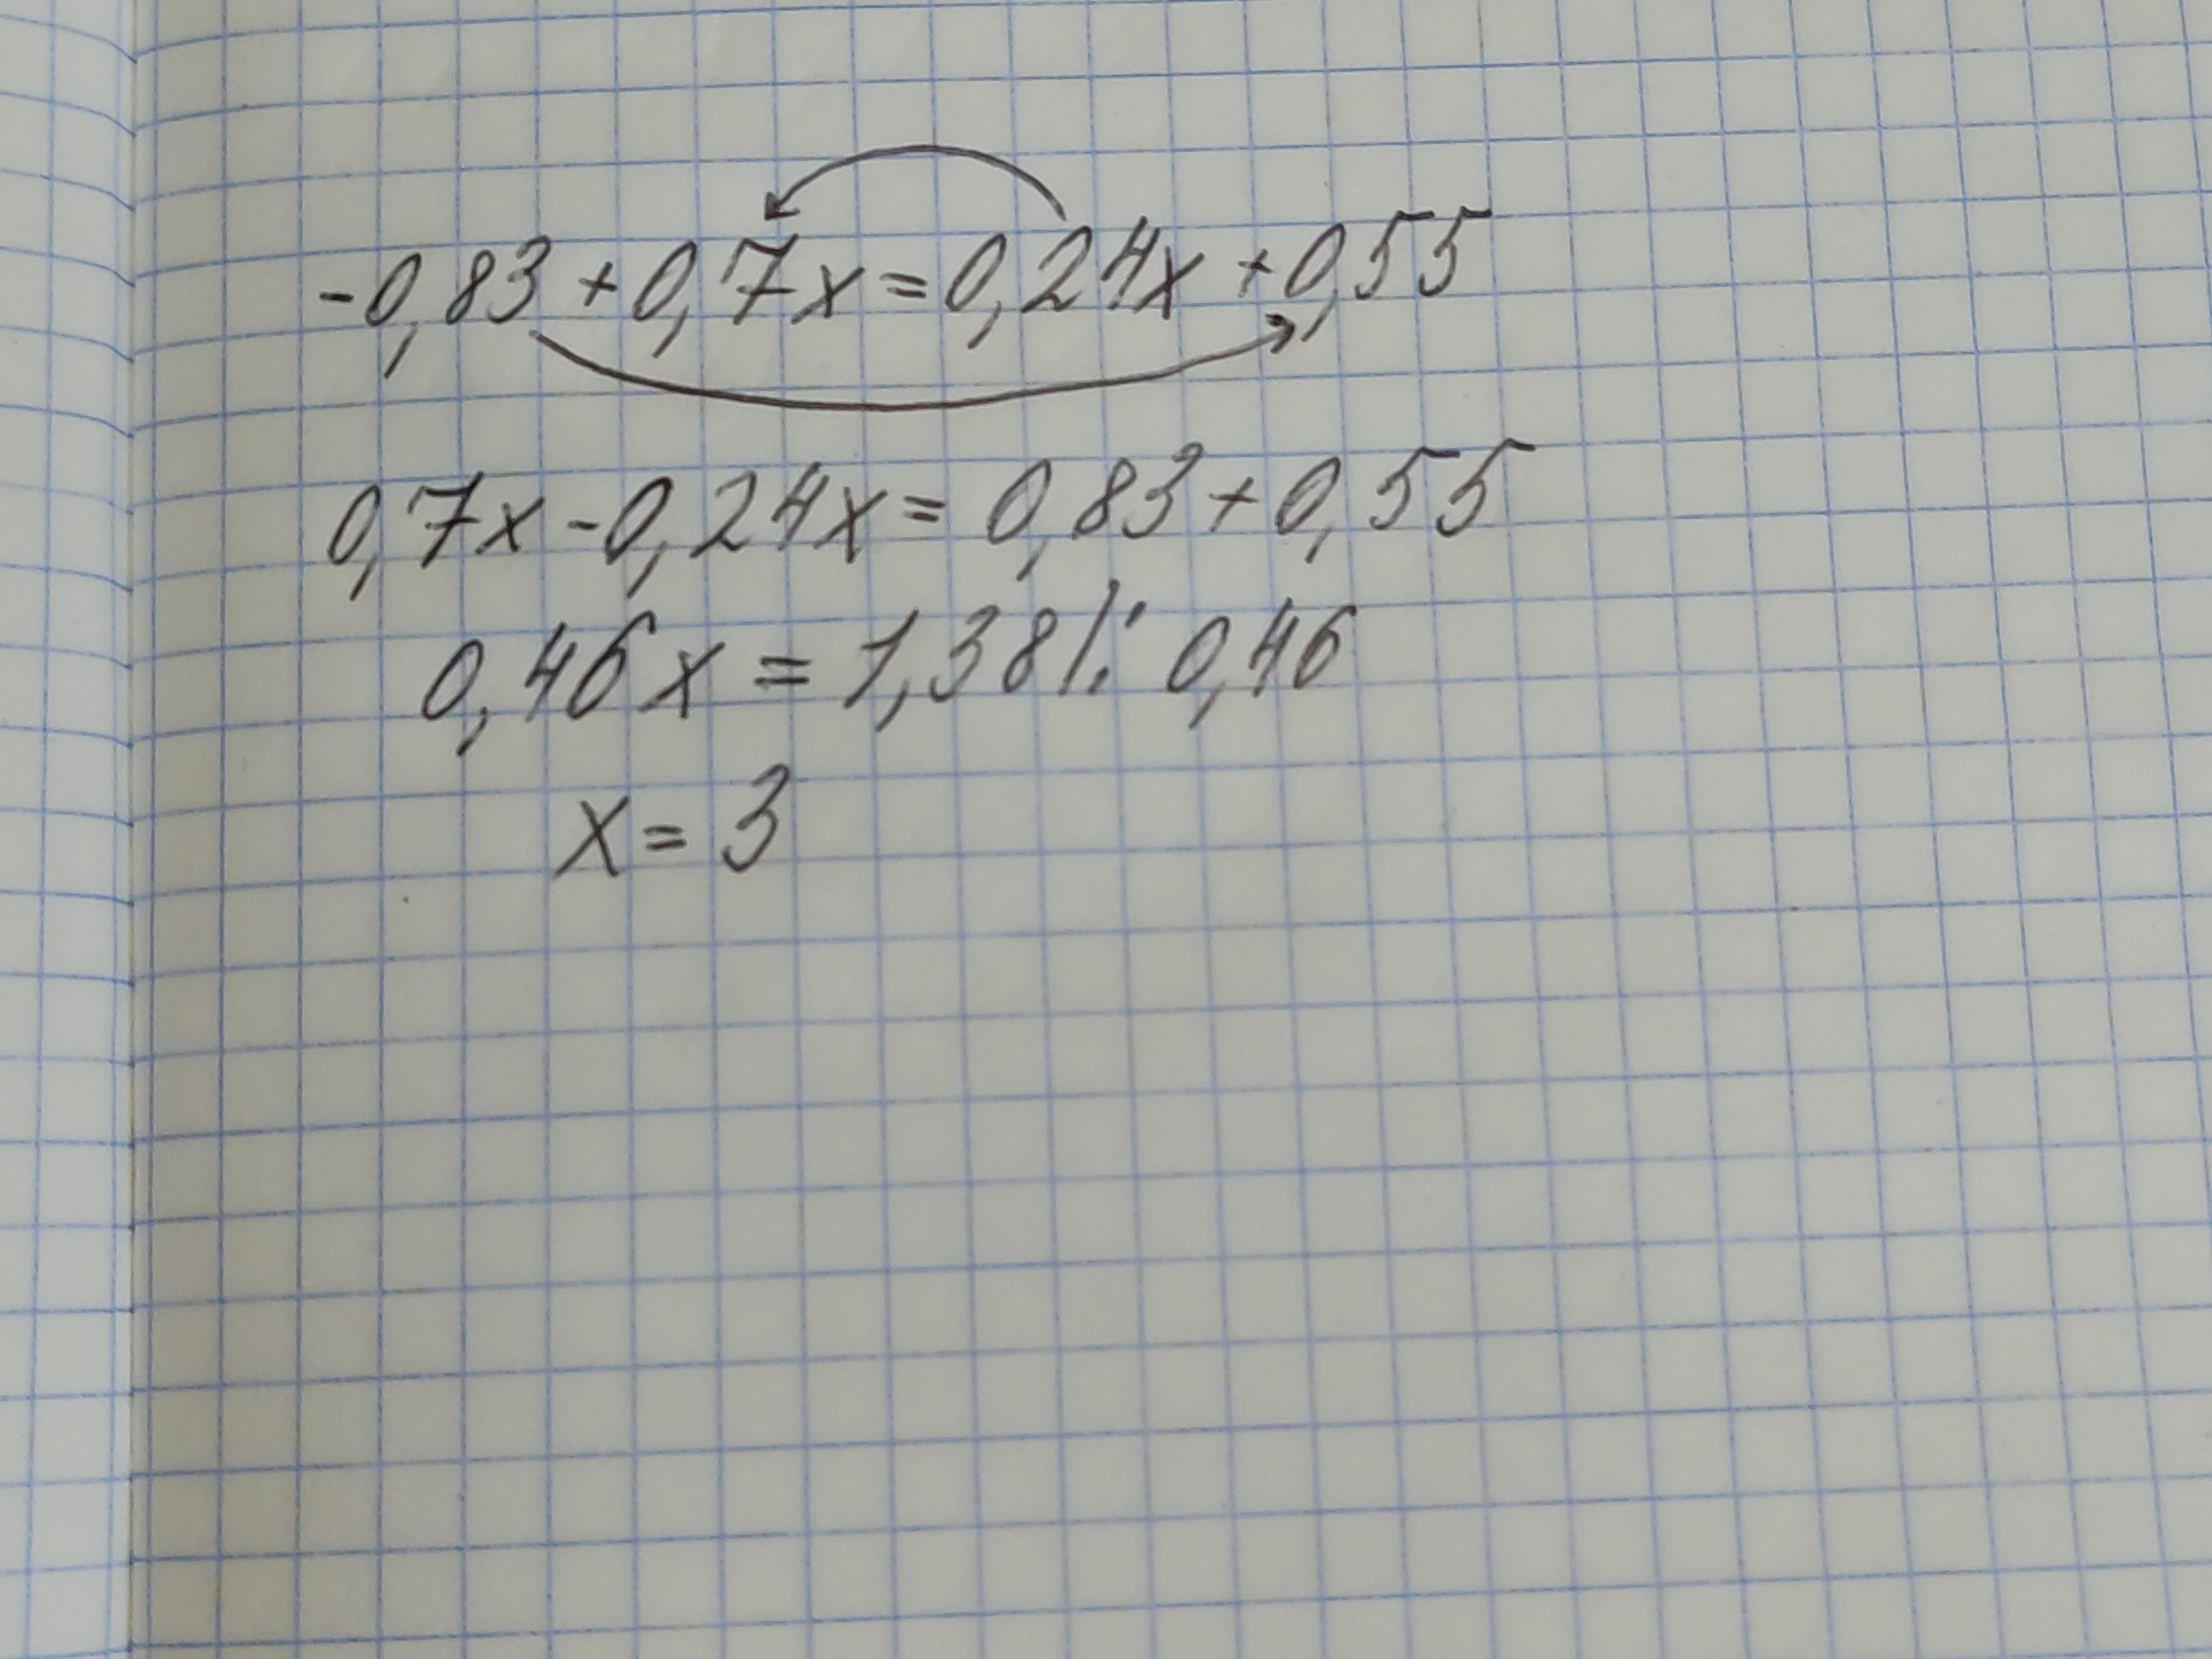 -0,83+0,7x=0,24x+0,55
0,7x-0,24x=0,83+0,55
0,46x=1,38|:0,46
x=3